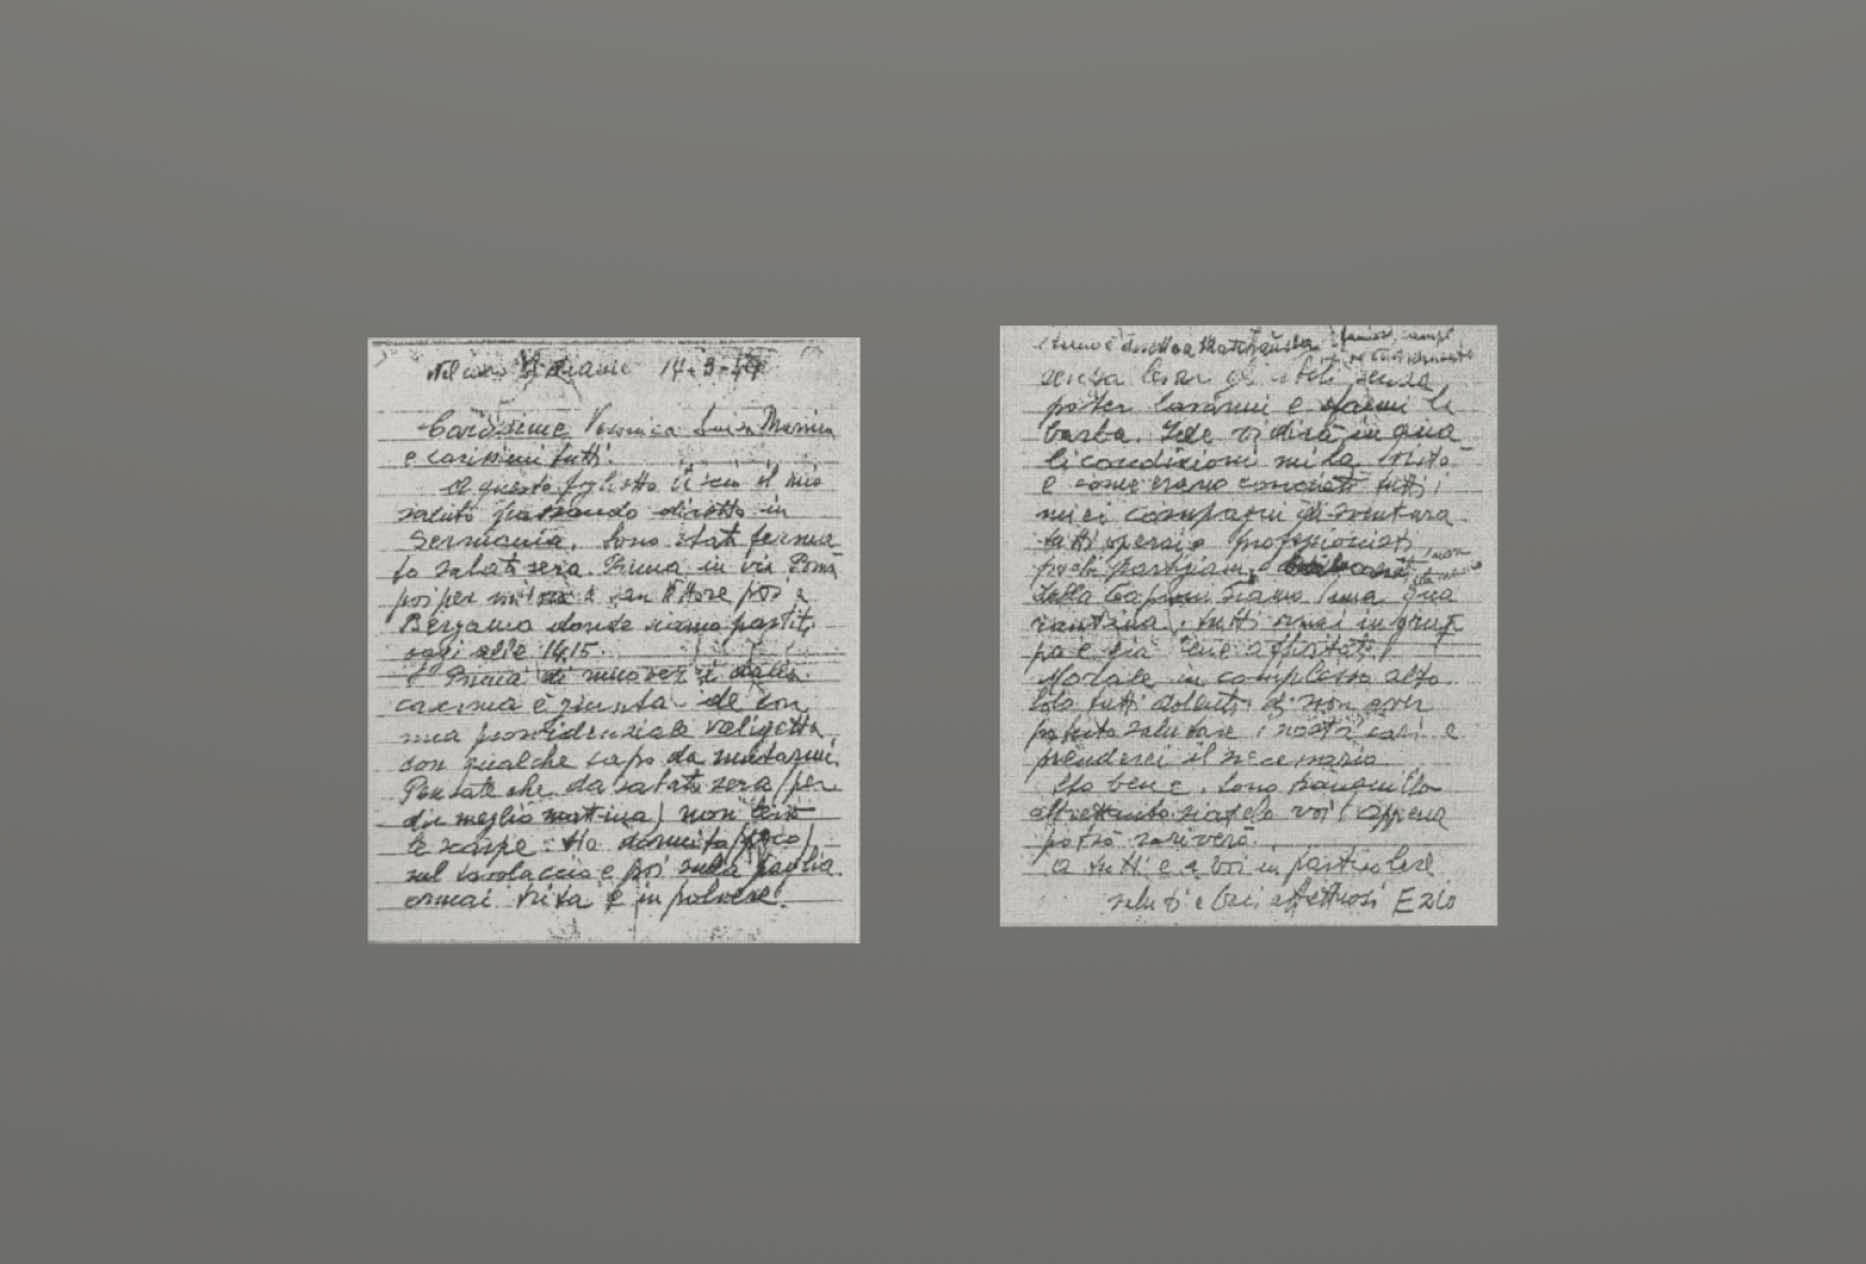 14-3-44
Carissime Veronica Luisa Marina
e carissimi tutti.
A questo foglietto il mio
saluto passando diretto in
Germania. Sono stato ferma
to sabato sera. Prima in via
poi per a San Vittore poi a
Bergamo donde siamo partiti
oggi alle 14.15.
Prima di muoverci dalla
caserma è giunta Ide con
una provvidenziale valigetta
con qualche capo da mutarmi.
Pensate che da sabato sera (per
dir meglio mattina) non levo
le scarpe. Ho dormito (poco)
sul tavolaccio e poi sulla paglia
ormai trita e in polvere.
senza levar gli abiti, senza
poter lavarmi e farmi la
barba. Ide vi dirà in qua
li condizioni mi ha
e come erano conciati tutti i
miei compagni di sventura
tutti operai o professionisti
pochi partigiani. non
Siamo una qua
rantina, tutti ormai in grup
po e già bene affiatati.
Morale in complesso alto
Solo tutti dolenti di non aver
potuto salutare i nostri cari e
prenderci il necessario
Sto bene, sono tranquillo
altrettanto siatelo voi! Appena
potrò scriverò.
A tutti e a voi in particolare
saluti e baci affettuosi Ezio